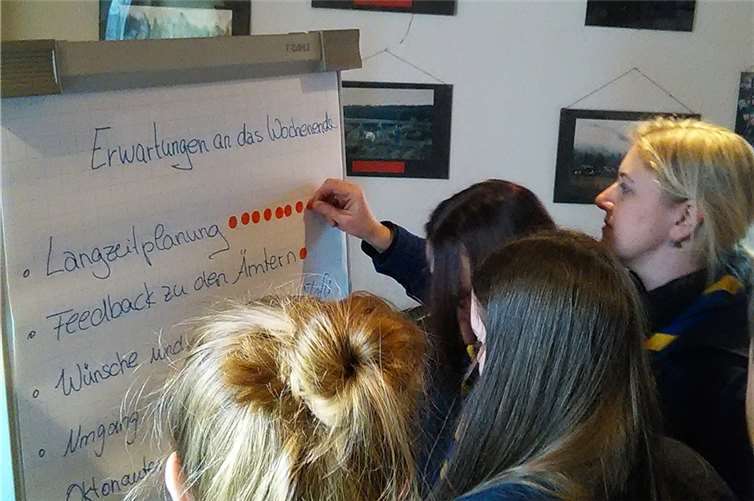 FRANKEN
Erwartungen an das Wochenende
• Langzeitplanung
• Feedback zu den Ämtern
• Wünsche und
• Umgang
Oktonauten